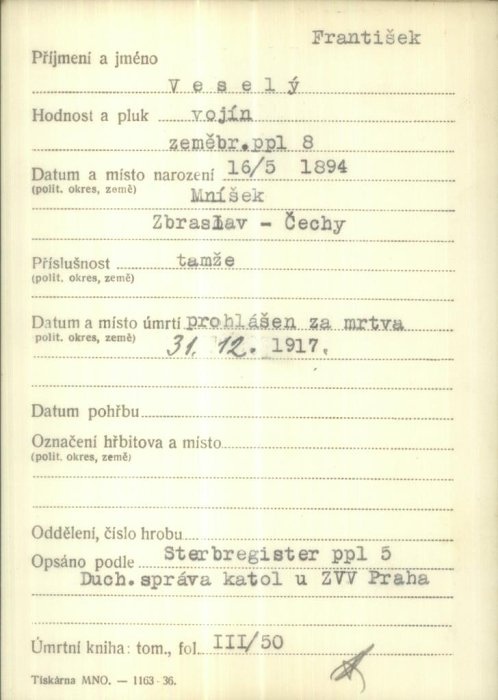 František
Příjmení a jméno
Veselý
Hodnost a pluk vojín
zeměbr.ppl 8
Datum a místo narození 16/5 1894
(polit. okres, země) Mníšek
Zbraslav - Čechy
Příslušnost tamže
(polit. okres, země)
Datum a místo úmrtí prohlášen za mrtva
polit. okres, země) 31. 12. 1917.
Datum pohřbu
Označení hřbitova a místo
(polit. okres, země)
Oddělení, číslo hrobu
Opsáno podle Sterbregister ppl 5
Duch.správa katol u ZVV Praha
Úmrtní kniha: tom., fol. III/50
Tiskárna MNO. — 1163-36.